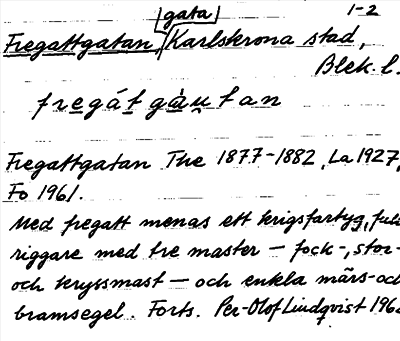 gata 1-2
Fregattgatan, Karlskrona stad,
Blek. l.
fregát gàu tan
Fregattgatan The 1877-1882, La 1927,
Fo 1961.
Med fregatt menas ett krigsfartyg, full-
riggare med tre master – fock-, stor-
och kryssmast – och enkla märs- och
bramsegel. Forts. Per-Olof Lindqvist 196